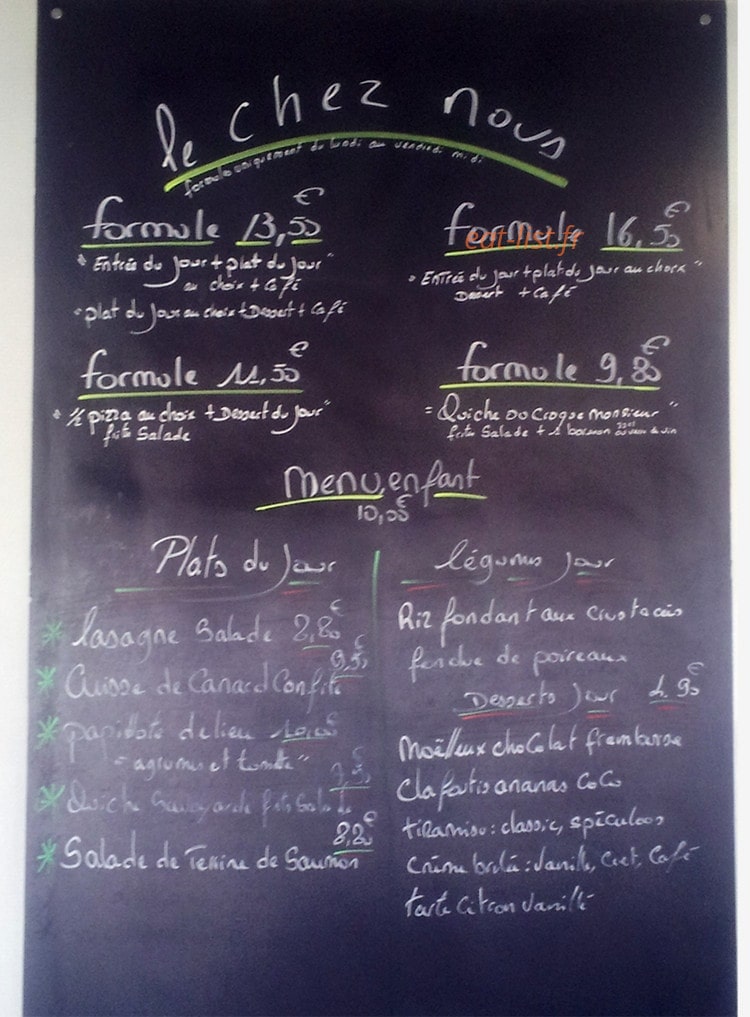 le chez nous
formules uniquement du lundi au vendredi midi
formule 13,50 €
"Entrée du jour + plat du jour"
au choix + Café
"plat du jour au choix + Dessert + Café
formule 16,50 €
eat-list.fr
"Entrée du jour + plat du jour au choix"
Dessert + Café
formule 11,50 €
"½ pizza au choix + Dessert du jour"
frite Salade
formule 9,80 €
"Quiche ou Croque Monsieur"
frite Salade + 1 boisson ou verre de vin
Menu enfant
10,00€
Plats du Jour
* lasagne Salade 8,80€
* Cuisse de Canard Confite 9,50€
* papillote de lieu 10,00€
"agrumes et tomate"
* Quiche Savoyarde frite Salade
* Salade de Terrine de Saumon 8,80€
légumes jour
Riz fondant aux crustacés
fondue de poireaux
Desserts Jour 4.90€
Moëlleux chocolat framboise
Clafoutis ananas Coco
tiramisu : classic, spéculoos
Crème brulé : Vanille, Café
tarte Citron Vanille